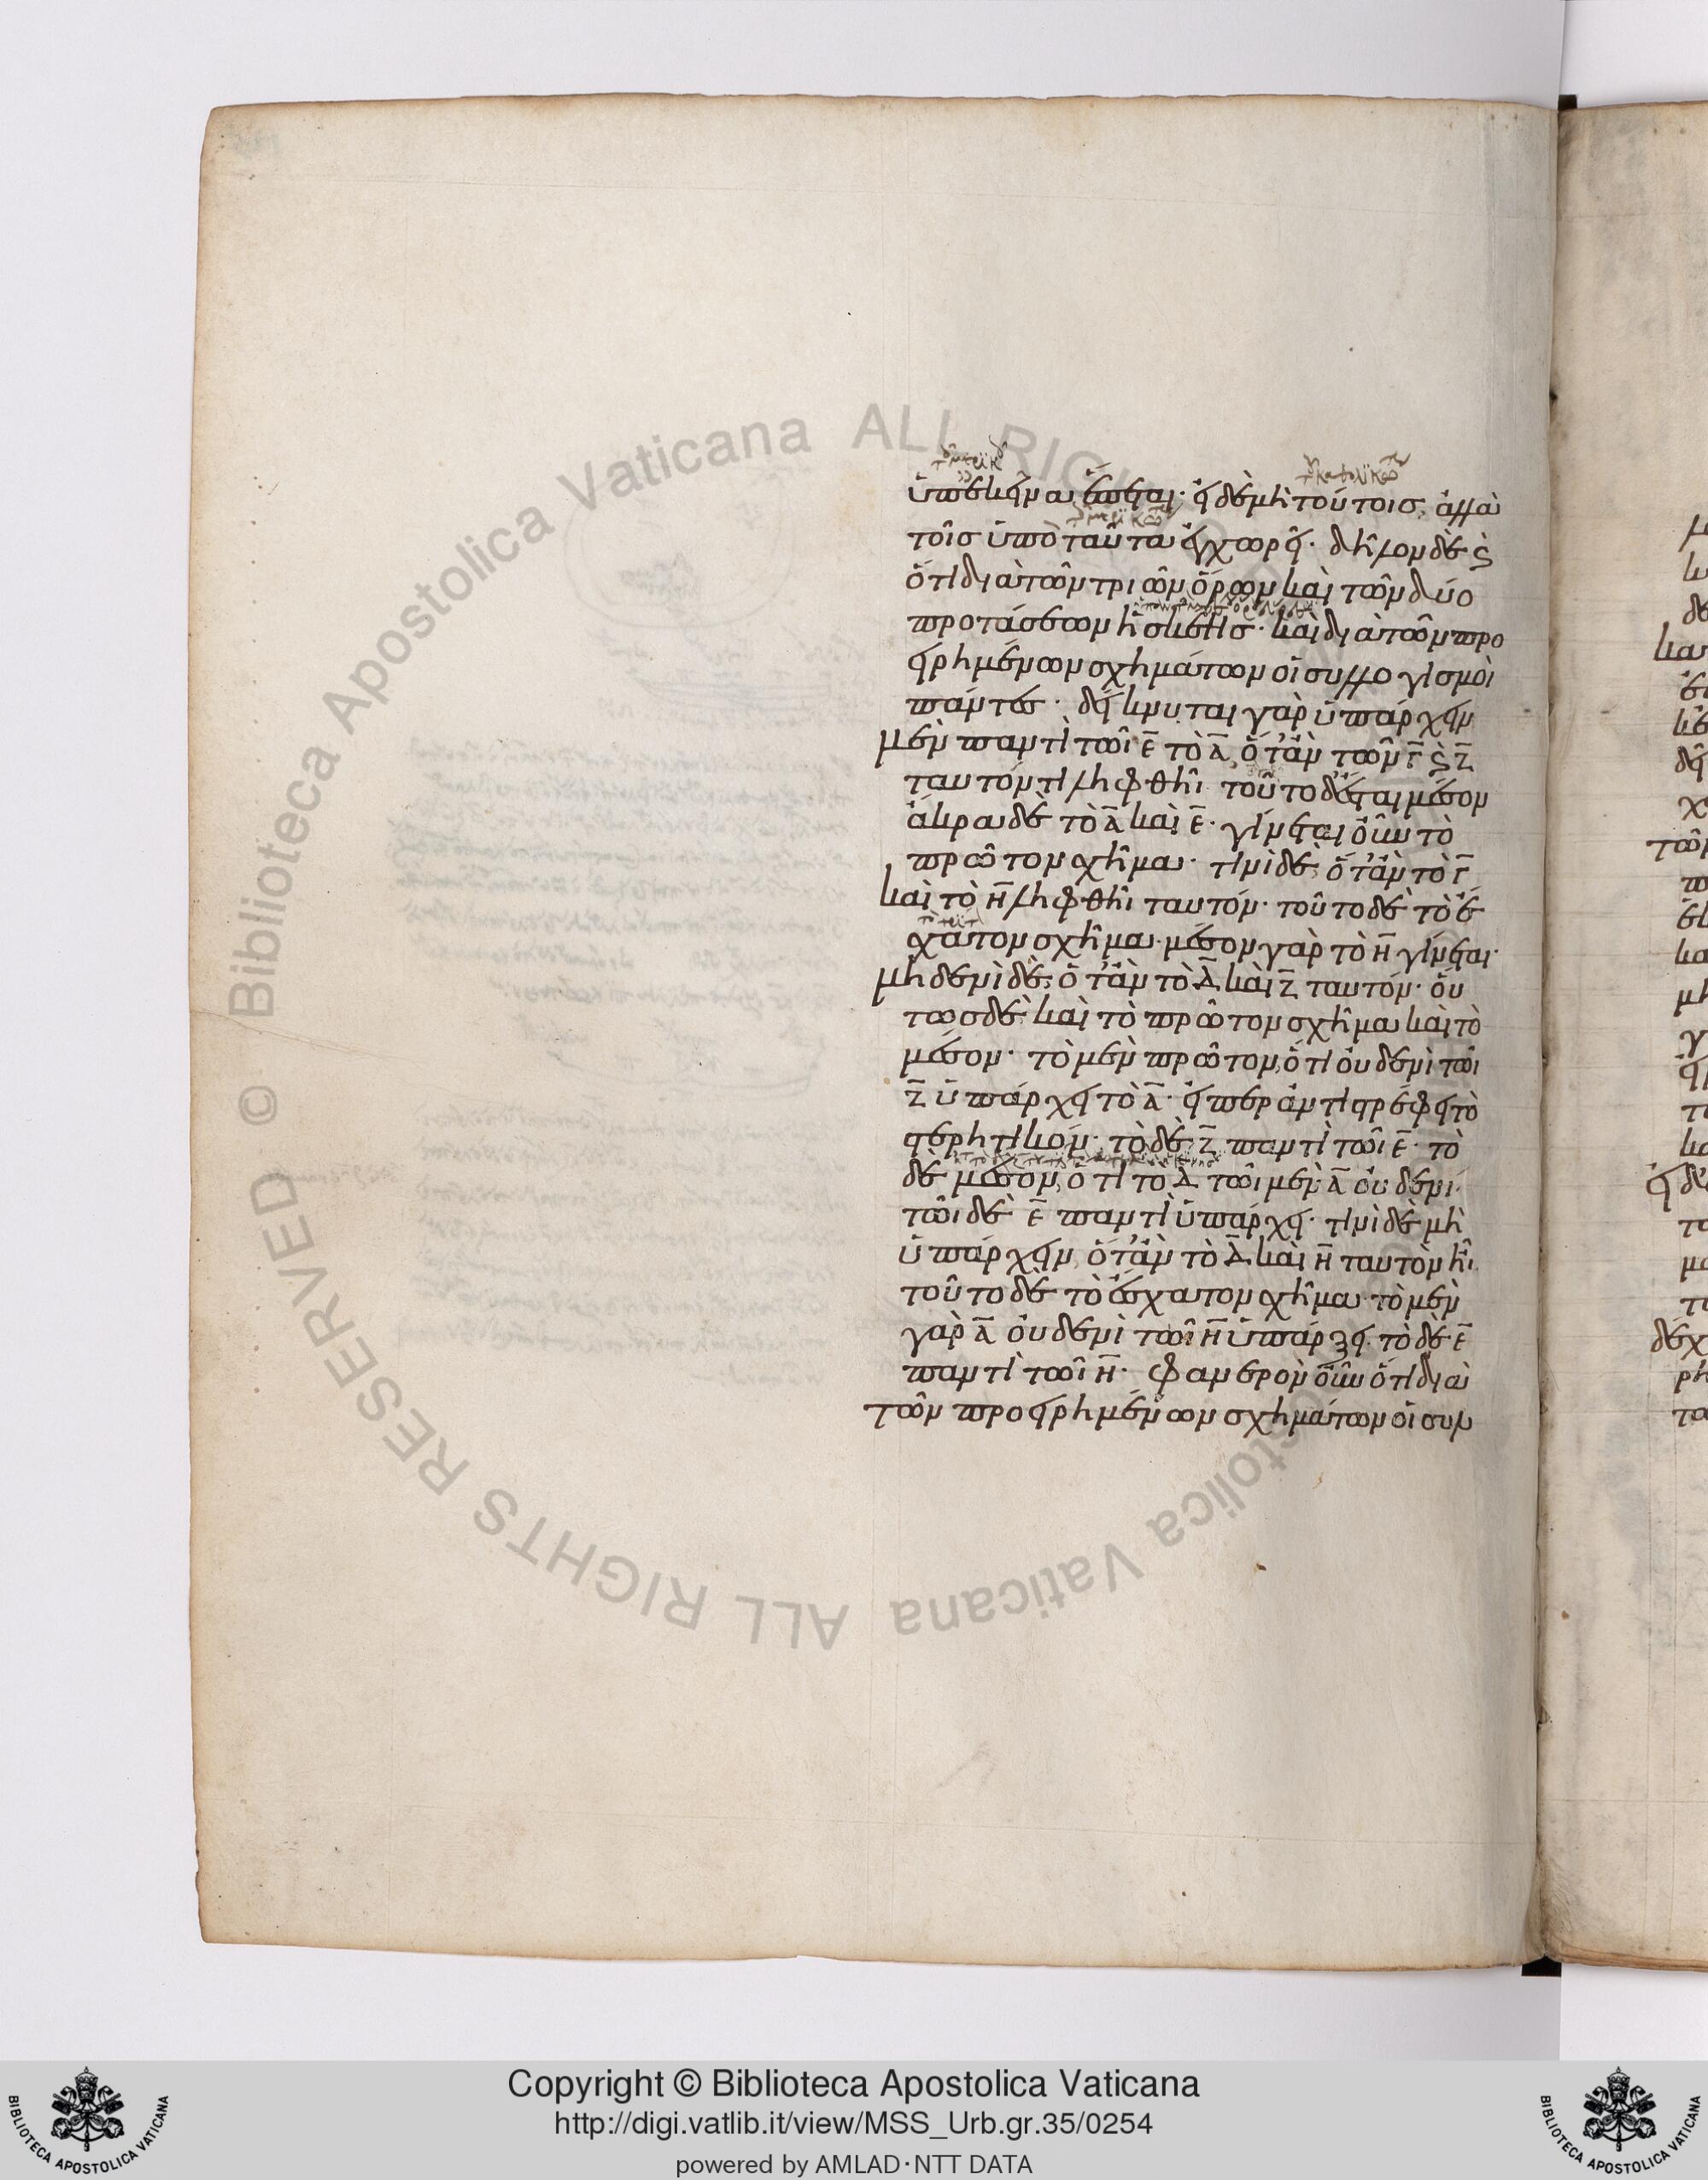 ὑποκείμενα ἔσται· εἰ δὲ μὴ τούτοις, ἀλλὰ
τοῖς ὑπὸ ταῦτα ἐγχωρεῖ· δῆλον δὲ ϗ
ὅτι διὰ τῶν τριῶν ὅρων καὶ τῶν δύο
προτάσεων ἡ σκέψις· καὶ διὰ τῶν προ
ειρημένων σχημάτων οἱ συλλογισμοὶ
πάντες· δείκνυται γὰρ ὑπάρχειν
μὲν παντὶ τῶι Ε τὸ Α, ὅτ' ἂν τῶν Γ ϗ Ζ
ταυτόν τι ληφθῆι· τοῦτο δ' ἔσται μέσον
ἄκρα δὲ τὸ Α καὶ Ε· γίνεται οὖν τὸ
πρῶτον σχῆμα· τινὶ δὲ, ὅτ' ἂν τὸ Γ
καὶ τὸ Η ληφθῆι ταυτόν· τοῦτο δὲ τὸ ἔ
σχατον σχῆμα· μέσον γὰρ τὸ Η γίνεται·
μηδενὶ δὲ, ὅτ' ἂν τὸ Δ καὶ Ζ ταυτόν· οὕ
τως δὲ καὶ τὸ πρῶτον σχῆμα καὶ τὸ
μέσον· τὸ μὲν πρῶτον, ὅτι οὐδενὶ τῶι
Ζ ὑπάρχει τὸ Α· εἴπερ ἀντιστρέφει τὸ
στερητικόν· τὸ δὲ Ζ παντὶ τῶι Ε· τὸ
δὲ μέσον, ὅτι τὸ Δ τῶι μὲν Α οὐδενί·
τῶι δὲ Ε παντὶ ὑπάρχει· τινὶ δὲ μὴ
ὑπάρχειν, ὅτ' ἂν τὸ Δ καὶ Η ταυτὸν ἦι·
τοῦτο δὲ τὸ ἔσχατον σχῆμα· τὸ μὲν
γὰρ Α οὐδενὶ τῶι Η ὑπάρξει· τὸ δὲ Ε
παντὶ τῶι Η· φανερὸν οὖν ὅτι διὰ
τῶν προειρημένων σχημάτων οἱ συλ
Copyright © Biblioteca Apostolica Vaticana
http://digi.vatlib.it/view/MSS_Urb.gr.35/0254
powered by AMLAD·NTT DATA